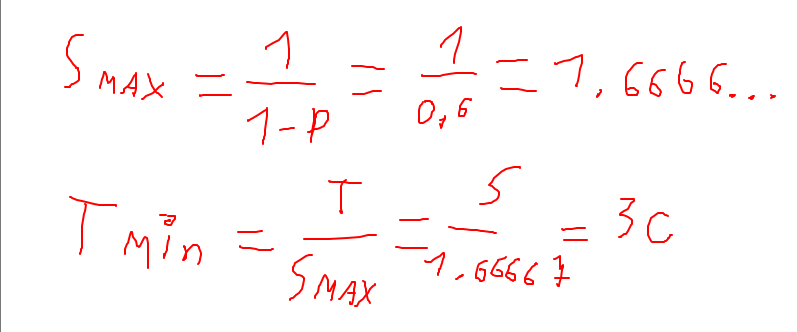 S MAX = 1/(1-P) = 1/0,6 = 1,6666...
T min = T/S MAX = 5/1,66667 = 3c